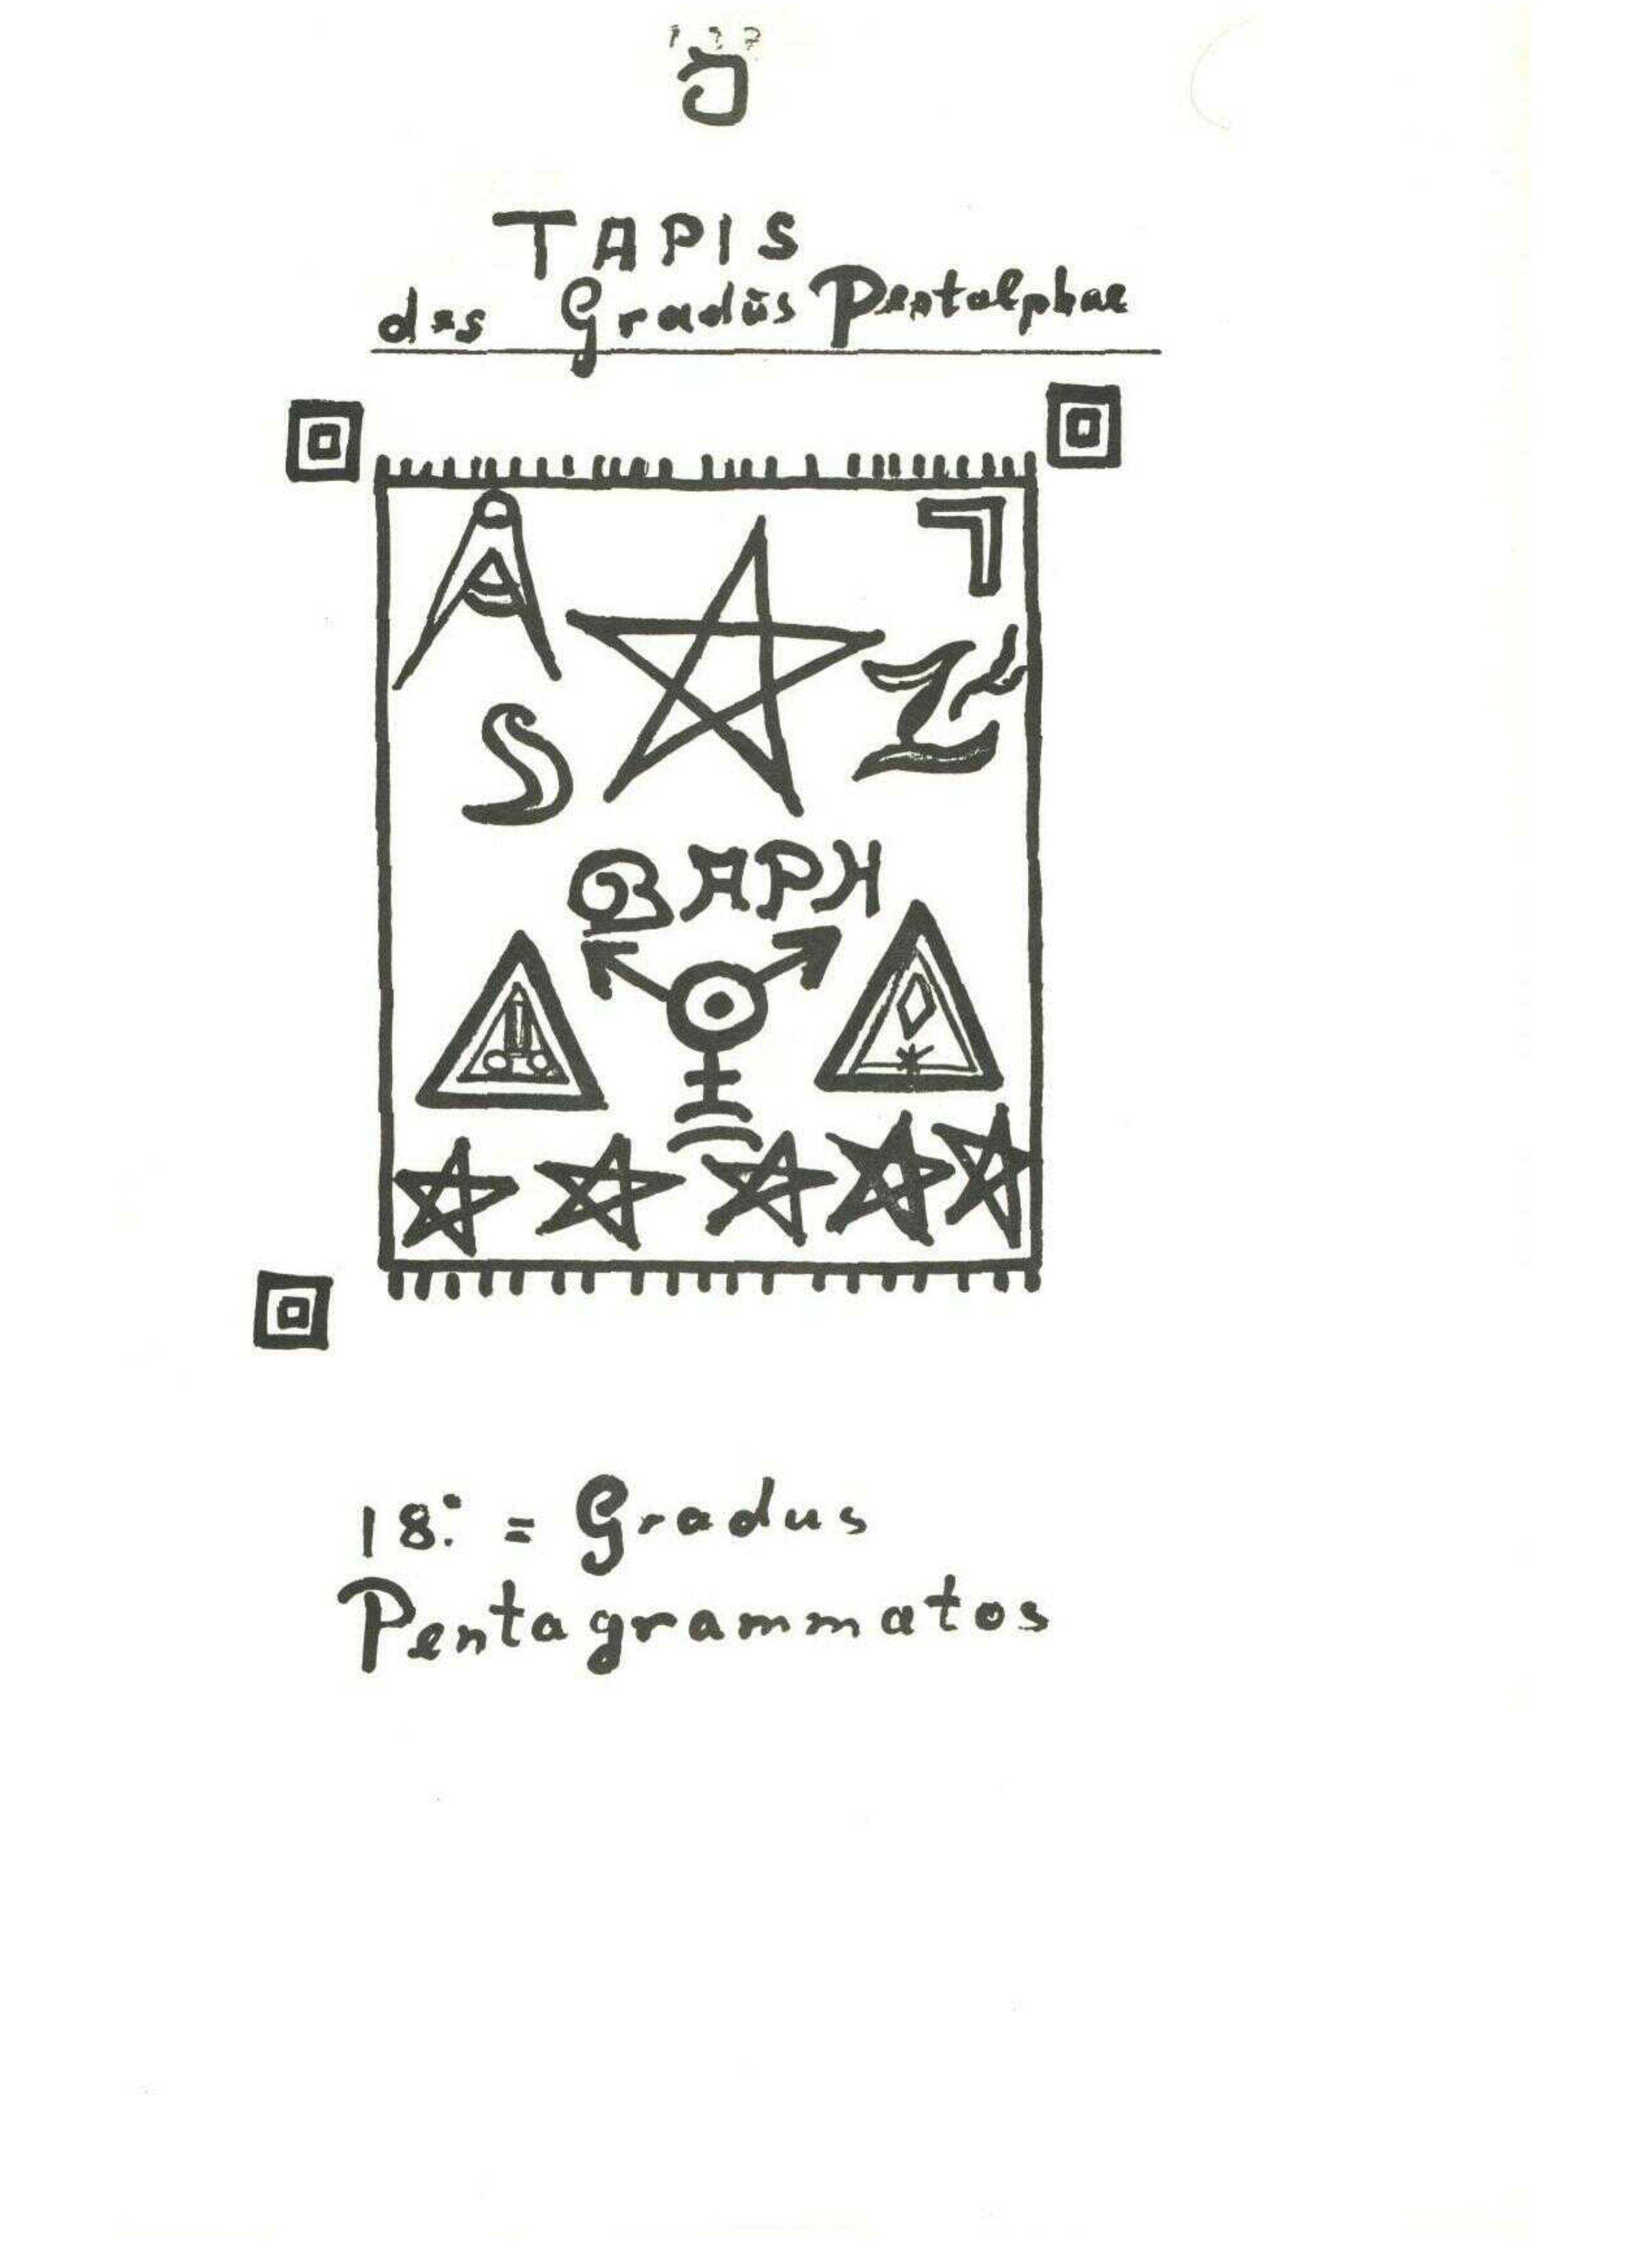 TAPIS
des Gradūs Pentalphae
A
S
Z
BAPH
18: = Gradus
Pentagrammatos